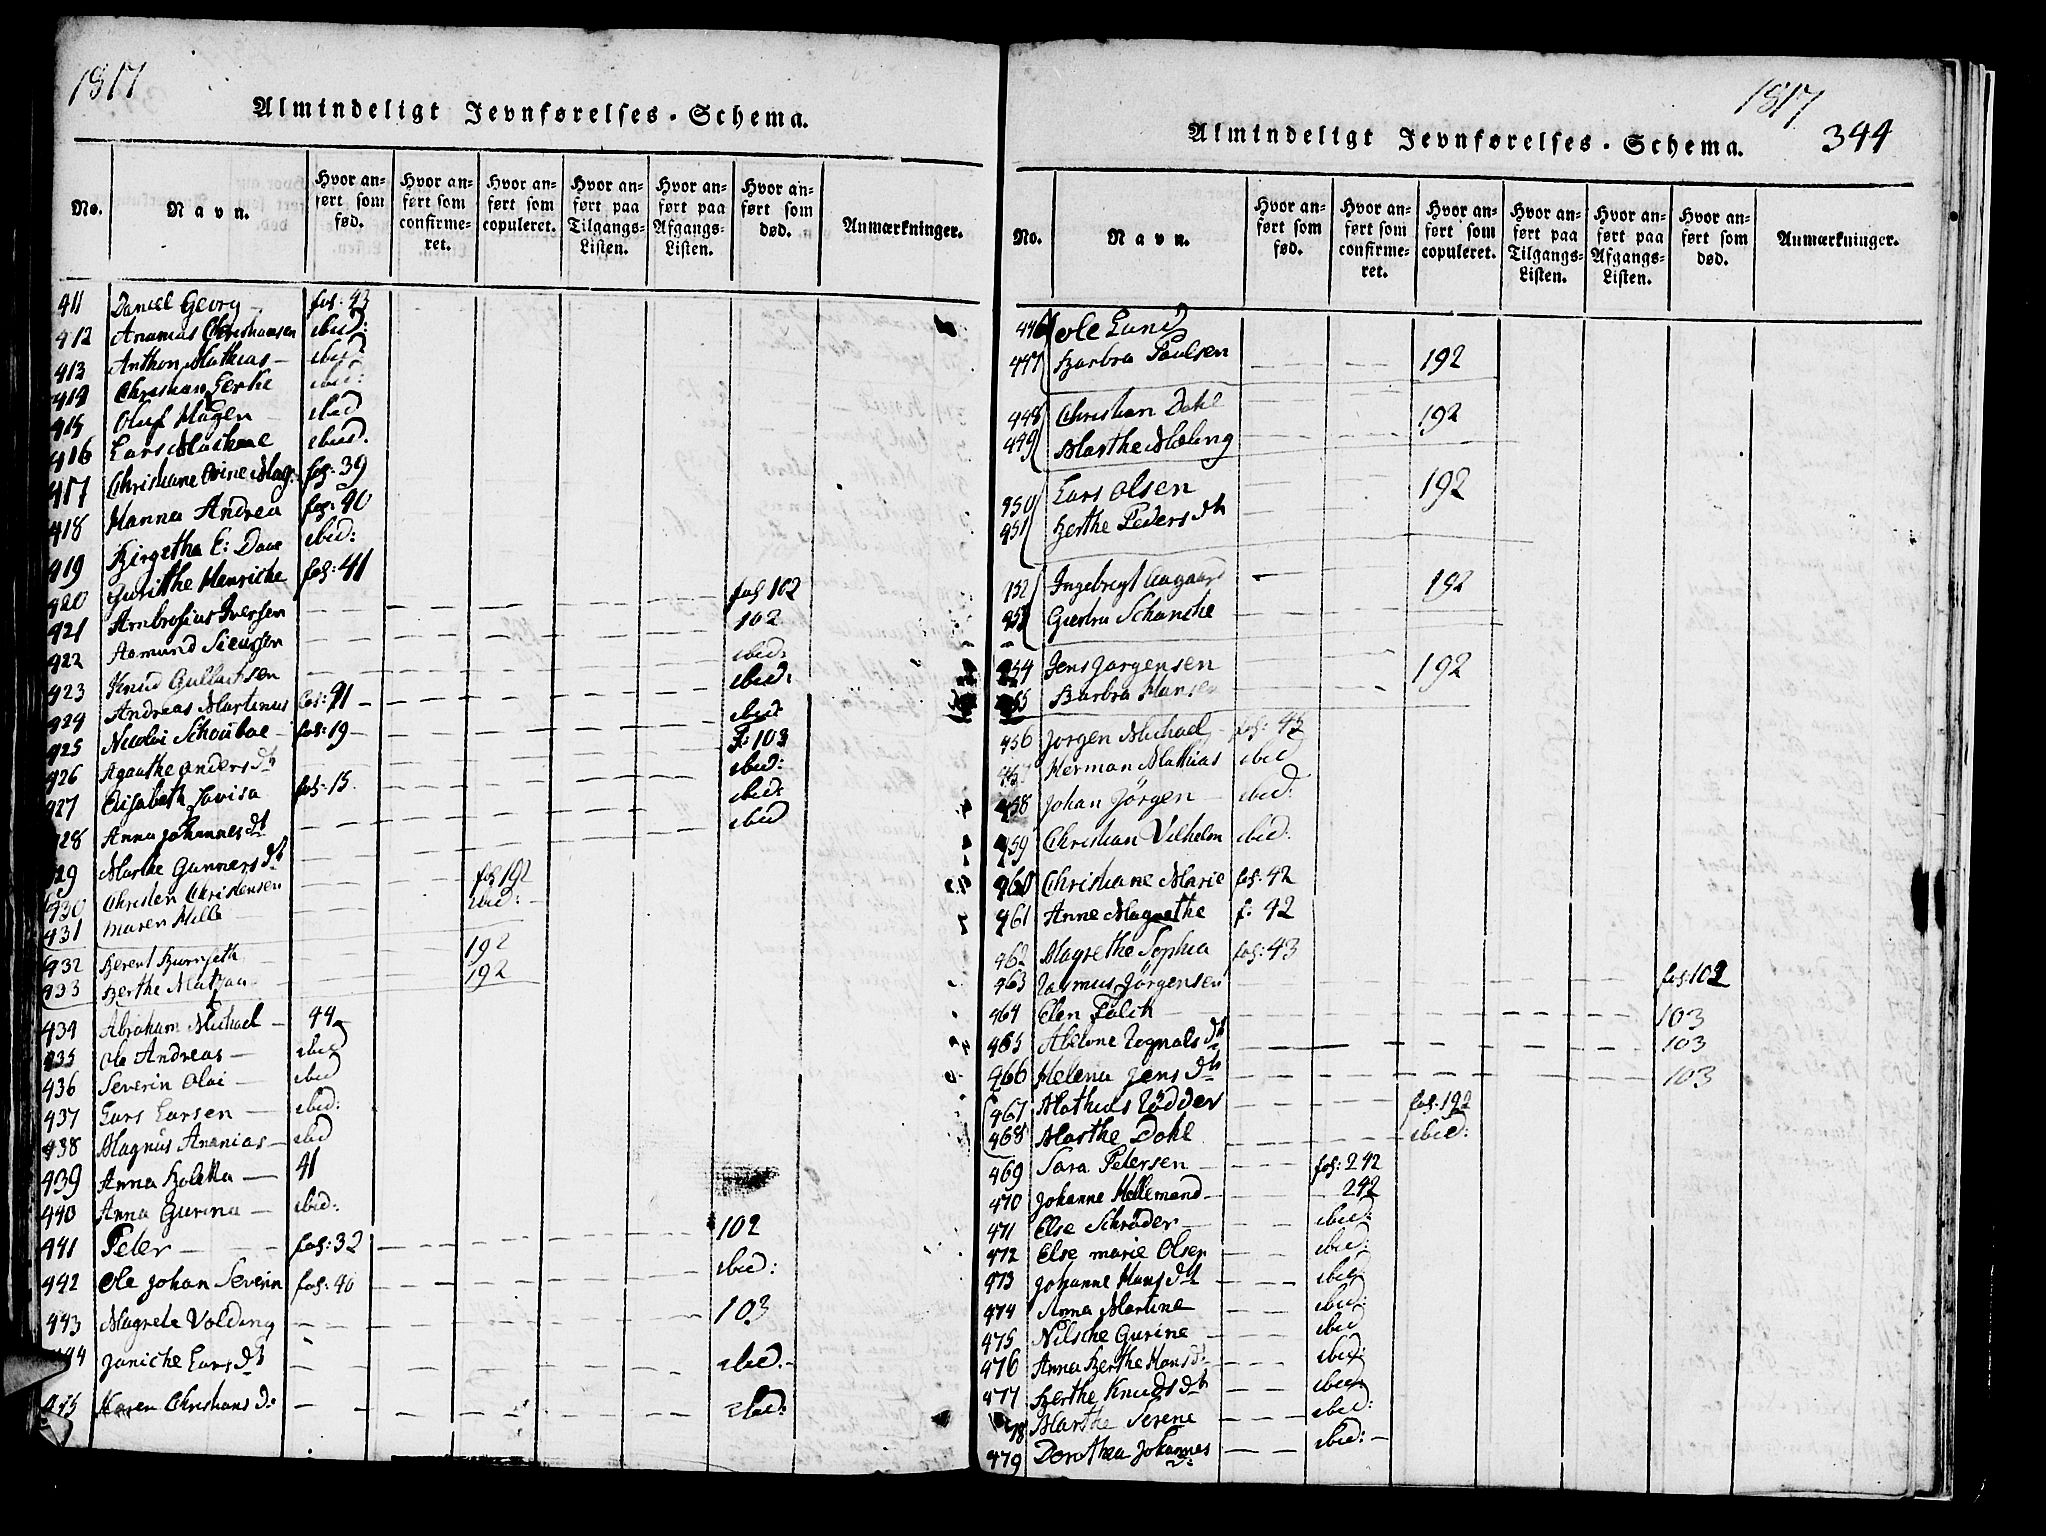 1817
Almindeligt Jevnførelses-Schema.
No. Navn. Hvor anført som fød. Hvor anført som confirmeret. Hvor anført som copuleret. Hvor anført paa Tilgangs-Listen. Hvor anført paa Afgangs-Listen. Hvor anført som død. Anmærkninger.
411 Daniel Georg fol: 43
412 Ananias Christiansen ibid:
413 Anthon Mathias ibid
414 Christian Gerhe ibid:
415 Oluf Hagen ibid
416 Lars ibid.
417 Christiane Mag: fol: 39
418 Hanna Andrea fol: 40
419 Birgetha E: ibid:
420 Henriche fol: 41
421 Ambrosius Iversen fol 102
422 Aamund 102
423 Knud ibid:
424 Andreas Martinus fol: 41 ibid:
425 Nicolai fol: 19 ibid:
426 Agaathe Anders dt F: 103
427 Elisabeth Lovisa fol: 15 ibid:
428 Anna Johannes dt ibid:
429 Marthe Gunners dt ibid
430 Christen Christensen fol 192
431 Maren ibid:
432 Berent 192
433 Berthe 192
434 Abraham Michael 44
435 Ole Andreas ibid
436 Severin Olai ibid
437 Lars Larsen ibid:
438 Magnus Ananias ibid
439 Anna 41
440 Anna Gurina ibid:
441 Peter fol: 32 102
442 Ole Johan Severin fol: 40 ibid:
443 Magrete Volding 103
444 Janiche Lars dt ibid.
445 Karen Christians d: ibid:
1817
344
Almindeligt Jevnførelses-Schema.
No. Navn. Hvor anført som fød. Hvor anført som confirmeret. Hvor anført som copuleret. Hvor anført paa Tilgangs-Listen. Hvor anført paa Afgangs-Listen. Hvor anført som død. Anmærkninger.
446 Ole Lund
447 Barbra Paulsen 192
448 Christian Dahl 192
449 Marthe Maling
450 Lars Olsen 192
451 Berthe Peders dt
452 Ingebregt Aagaard 192
453 Schanche
454 Jens Jørgensen 192
455 Barbra Hansen
456 Jørgen Michael fol: 43
457 Herman Mathias ibid
458 Johan Jörgen ibid:
459 Christian Vilhelm ibid:
460 Christiane Marie fol: 42
461 Anne Magrethe f: 42
462 Magrethe Sophia fol: 43
463 Rasmus Jörgensen fol: 102
464 Elen Falch 103
465 Abelone Regnals dt 103
466 Helena Jens dt 103
467 Mathias Rödder fol: 192
468 Marthe Dahl ibid:
469 Sara Petersen fol: 242
470 Johanne Hellemand 242
471 Else Schrøder ibid:
472 Else Marie Olsen ibid:
473 Johanne Hans dt ibid
474 Anna Martine ibid:
475 Nilsche Gurine ibid
476 Anna Berthe Hans dt ibid:
477 Berthe Knuds dt ibid
478 Marthe Serene ibid:
479 Dorthea Johannes d: ibid: